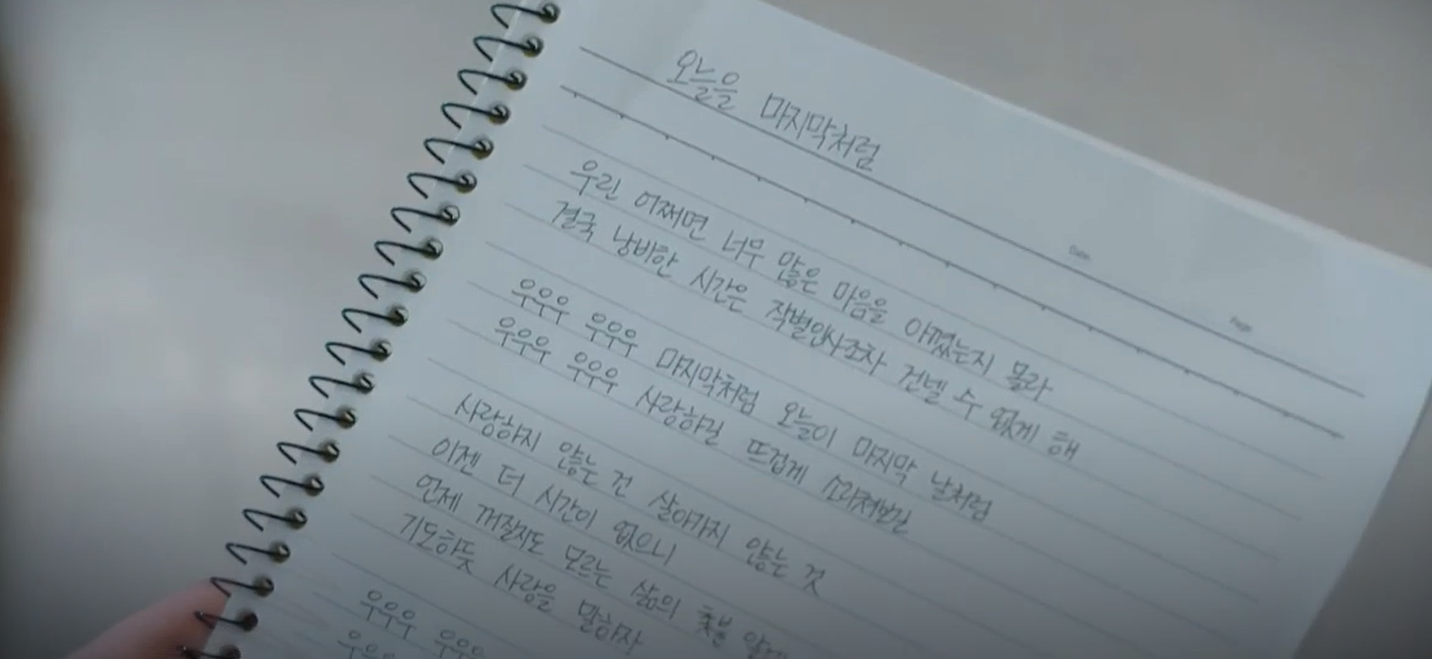 오늘을 마지막처럼
Date.
Page.
우린 어쩌면 너무 많은 마음을 아꼈는지 몰라
결국 낭비한 시간은 작별인사조차 건넬 수 없게 해
우우우 우우우 마지막처럼 오늘이 마지막 날처럼
우우우 우우우 사랑하길 뜨겁게 쓰라져버린
사랑하지 않는 건 살아가지 않는 것
이젠 더 시간이 없으니
언제 꺼질지도 모르는 삶의 촛불 앞에
기도하듯 사랑을 말하자
우우우 우우우
우우우 우우우